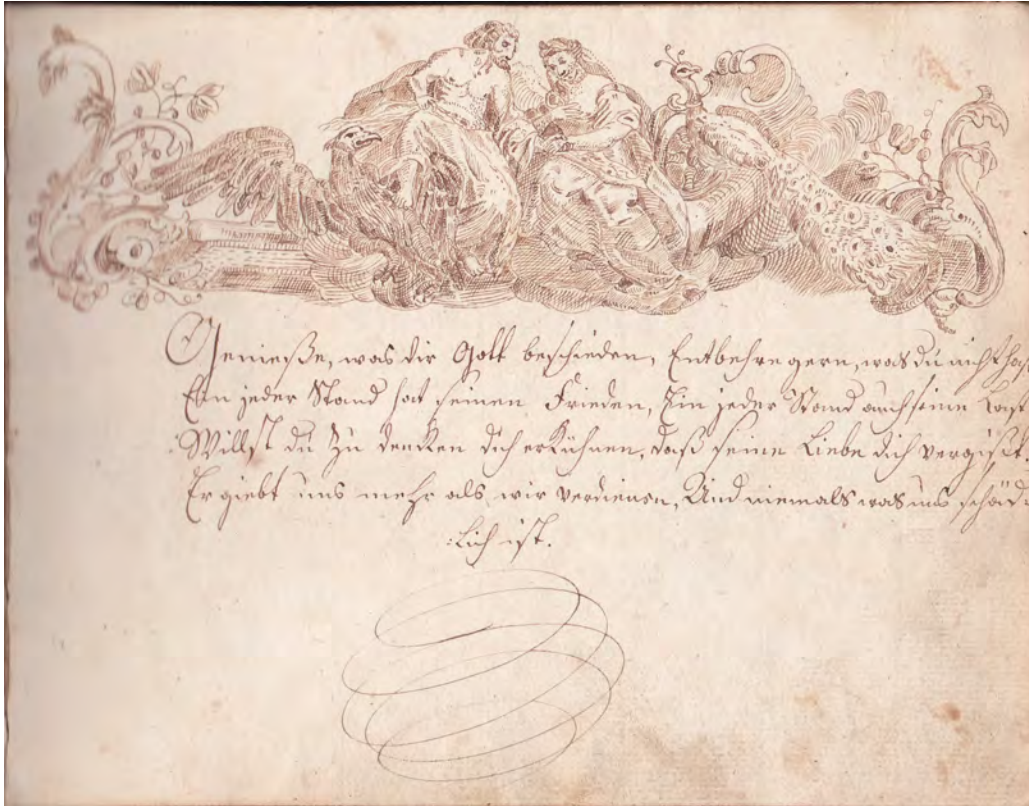 Genieße, was dir Gott beschieden, Entbehre gern, was du nicht hast
Ein jeder Stand hat seinen Frieden, Ein jeder Stand auch seine Last
Willst du zu dencken dich erkühnen, daß seine Liebe dich vergißt.
Er giebt uns mehr als wir verdienen, Und niemals was uns schäd-
lich ist.